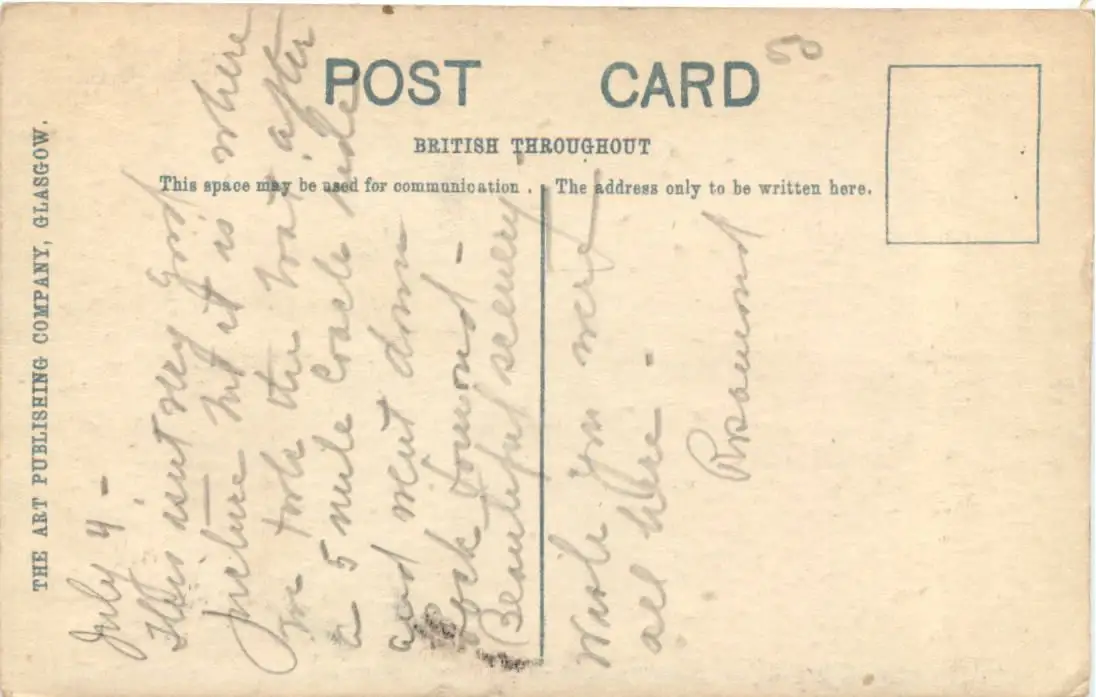 POST CARD
BRITISH THROUGHOUT
This space may be used for communication .
The address only to be written here.
THE ART PUBLISHING COMPANY, GLASGOW.
July 4 -
This isnt very good
picture but it is where
we took the boat after
a 5 mile coach ride
and went down
Lock Lomond -
Beautiful scenery -
Wish you were
all here -
Rosamond